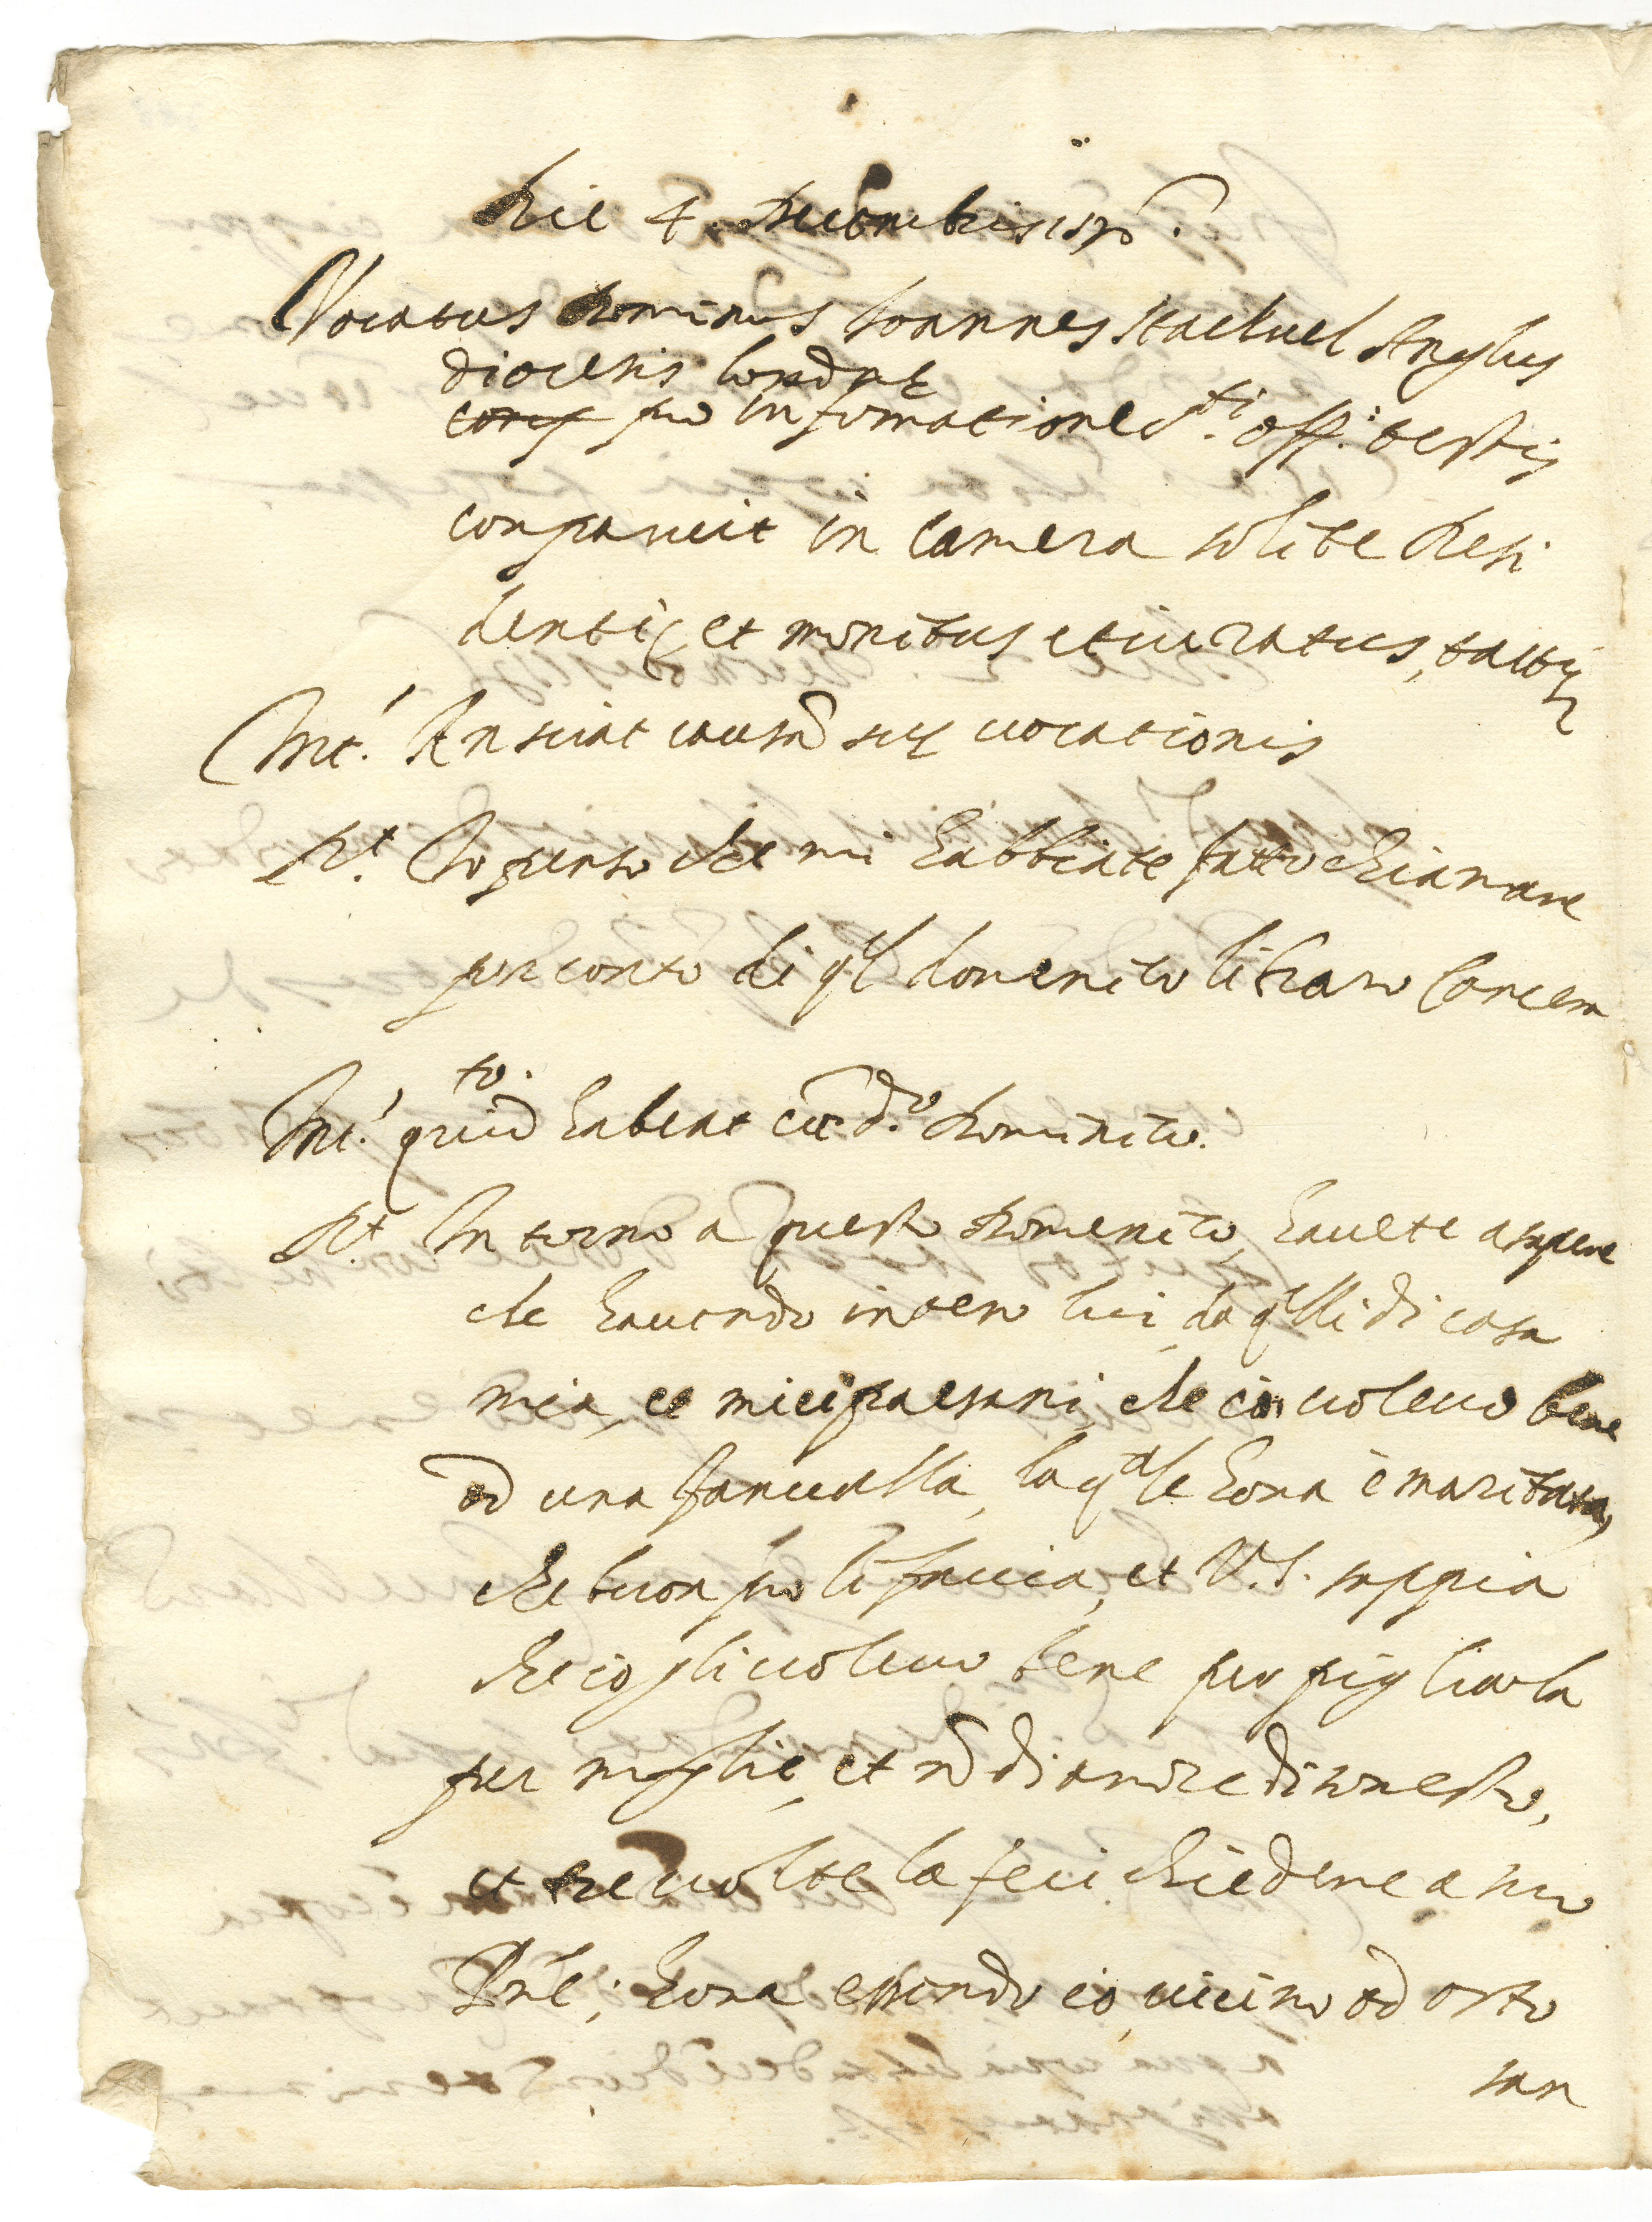 Die 4. Decembris 1570.
Vocatus Dominus Ioannes Stachuel Anglus
diocesis londnę
coray pro informatione S.ti off.i testis
comparuit in camera solitę Resi
dentię et monitus et iuratus, tactis
Int.' An sciat causā suę vocationis
R.t Io penso che mi habbiate fatto chiamare
per conto di q̄l domenico libraro carcera
to.
Int.' quid habeat cū d.o Dominico.
R.t Intorno a questo Domenico, havete a sapere
che havendo inteso lui, da q̄lli di casa
mia, et miei paesani, che io volevo bene
ad una fanciulla, la q.ale hora è maritata,
che buon pro li faccia, et V.S. sappia
che io gli volevo bene per pigliarla
per moglie, et nō di amore disonesto,
et tre volte la feci chiedere a suo
Pr̄e; hora essendo io, vicino ad orto
san